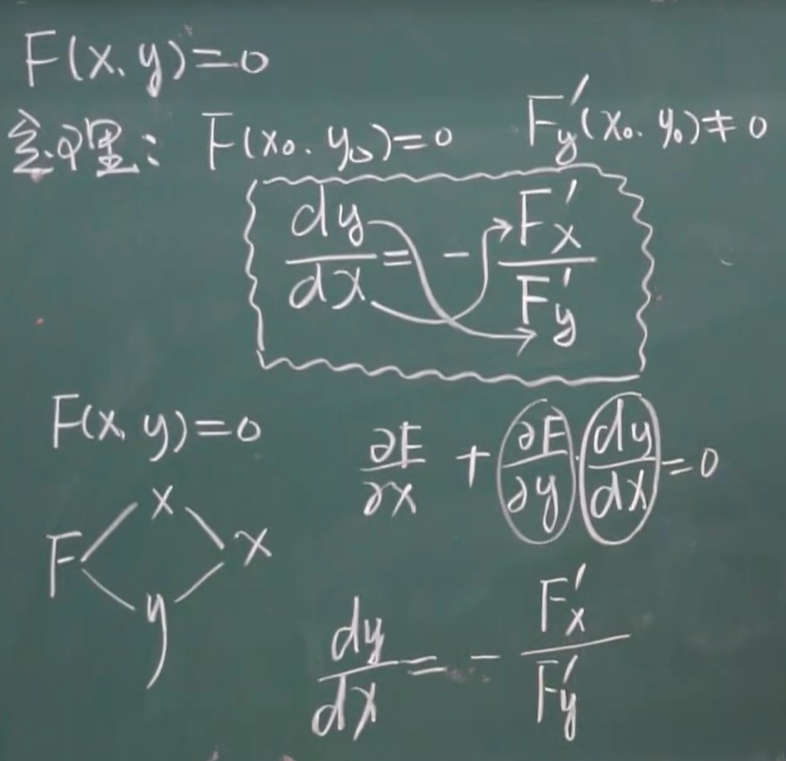 F(x, y)=0
定理: F(x₀, y₀)=0 F'y(x₀, y₀)≠0
dy/dx = - F'x/F'y
F(x, y)=0
∂F/∂x + ∂F/∂y · dy/dx = 0
F x y x
dy/dx = - F'x/F'y